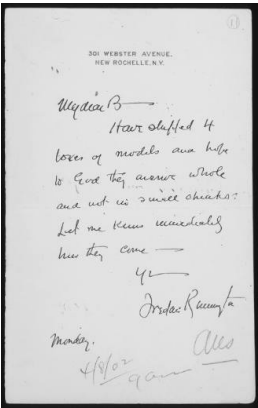 (1)
301 WEBSTER AVENUE,
NEW ROCHELLE, N.Y.
My dear B—
Have shipped 4
boxes of models and hope
to God they arrive whole
and not in small chunks.
Let me know immediately
how they come —
Yr —
Frederic Remington
Monday.
4/8/02
Ans